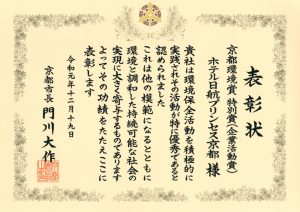 表彰状
京都環境賞 特別賞(企業活動賞)
ホテル日航プリンセス京都 様
貴社は環境保全活動を積極的に
実践されその活動が特に優秀であると
認められました
これは他の模範になるとともに
環境と調和した持続可能な社会の
実現に大きく寄与するものであります
よってその功績をたたえここに
表彰します
令和元年十二月十九日
京都市長 門川大作